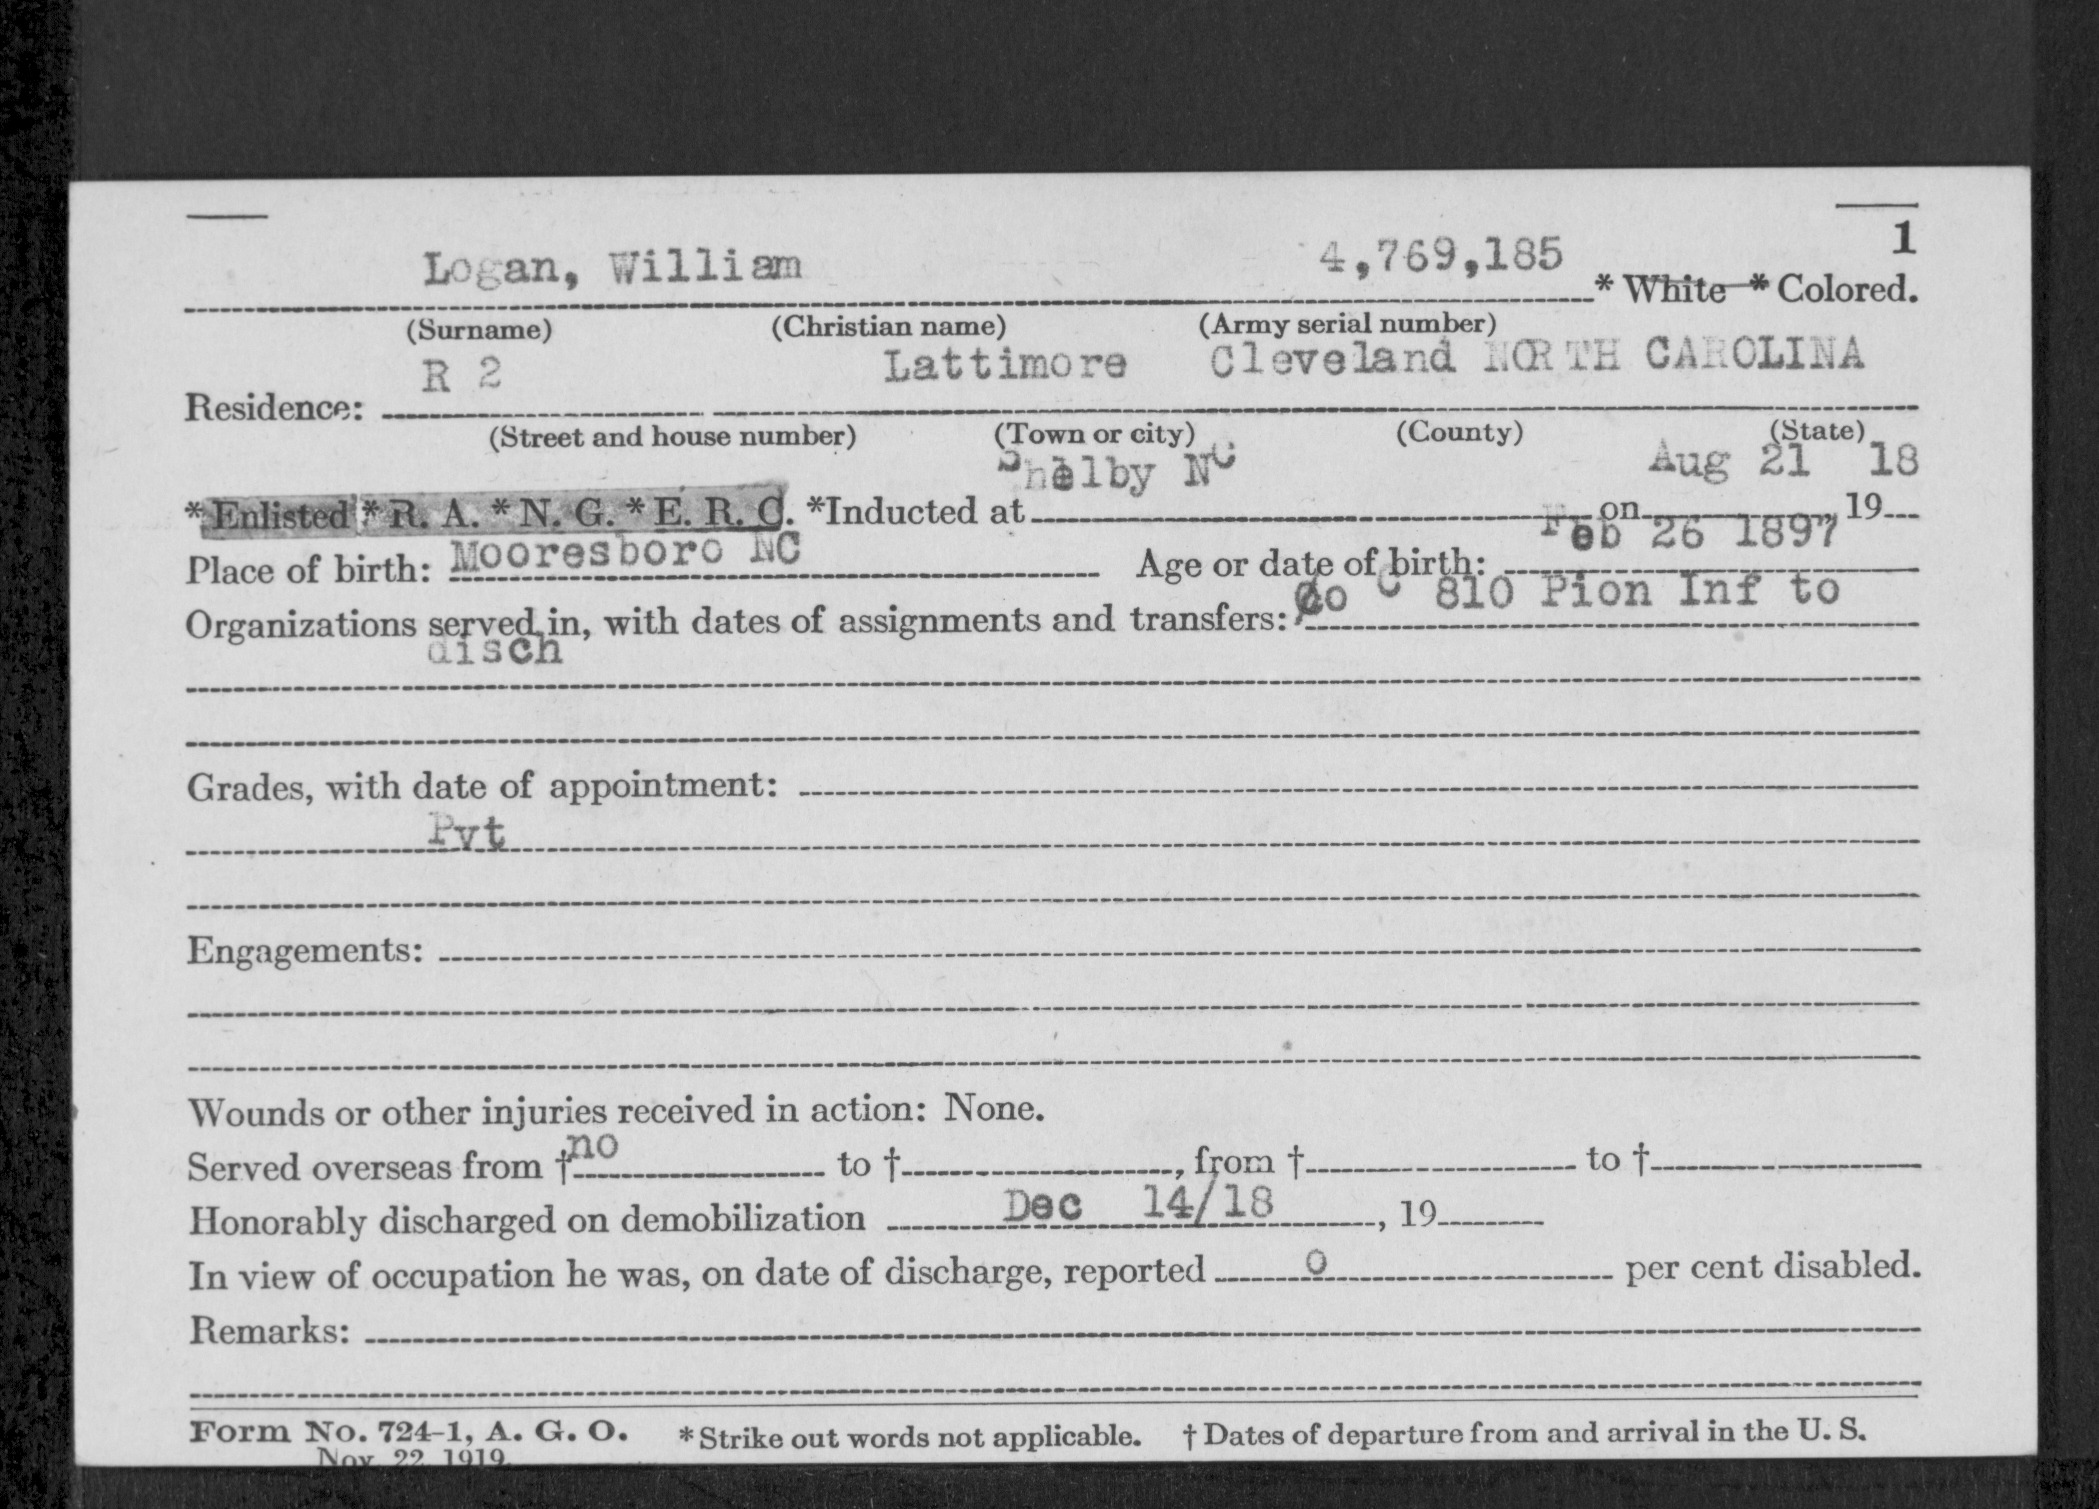 1
Logan, William 4,769,185 * White * Colored.
(Surname) (Christian name) (Army serial number)
R 2 Lattimore Cleveland NORTH CAROLINA
Residence:
(Street and house number) (Town or city) (County) (State)
Shelby NC Aug 21 18
*Enlisted * R. A. * N. G. * E. R. C. *Inducted at on , 19
Place of birth: Mooresboro NC Age or date of birth: Feb 26 1897
Organizations served in, with dates of assignments and transfers: Co C 810 Pion Inf to
disch
Grades, with date of appointment:
Pvt
Engagements:
Wounds or other injuries received in action: None.
Served overseas from † no to †, from † to †
Honorably discharged on demobilization Dec 14/18, 19
In view of occupation he was, on date of discharge, reported 0 per cent disabled.
Remarks:
Form No. 724-1, A. G. O. * Strike out words not applicable. † Dates of departure from and arrival in the U. S.
Nov. 22, 1919.